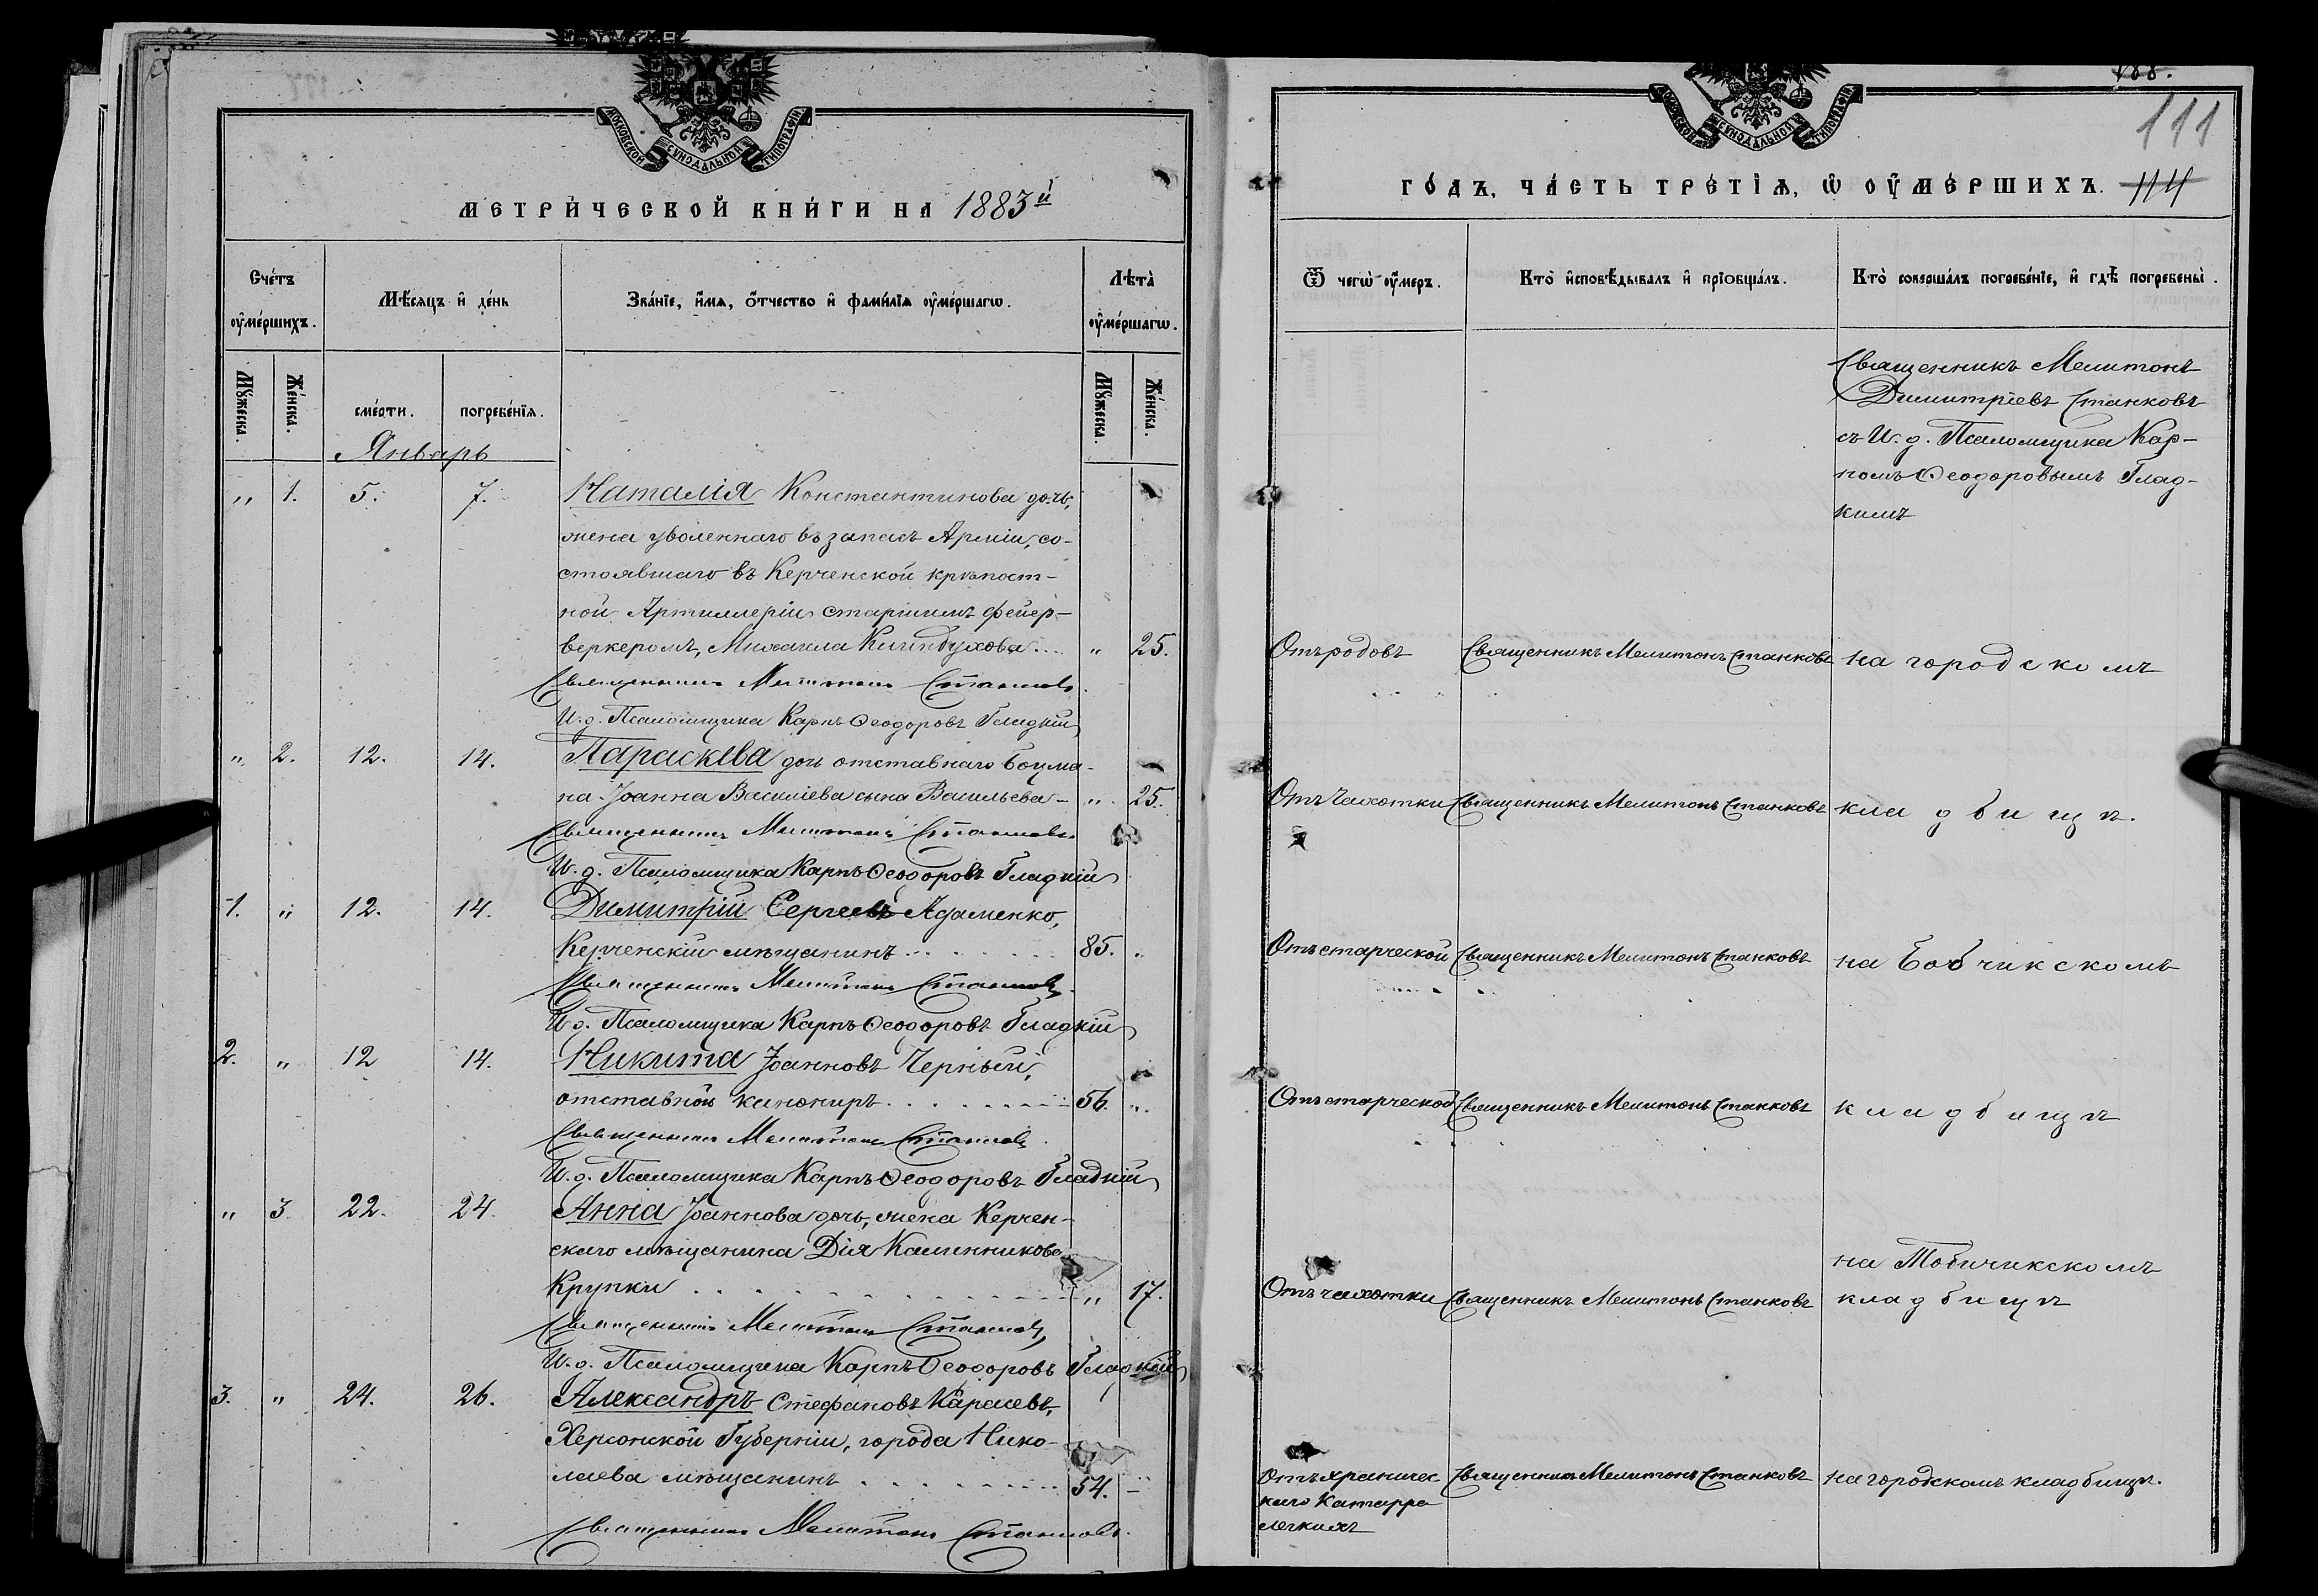 МОСКОВСКОЙ СѴНОДАЛЬНОЙ ТИПОГРАФІИ
МЕТРИЧЕСКОЙ КНИГИ НА 1883й
Счетъ оумершихъ.
Мѣсяцъ и день
Званіе, имя, отчество и фамилія оумершагѡ.
Лѣта оумершагѡ.
Мужеска.
Женска.
смерти.
погребенія.
Мужеска.
Женска.
Январь
„ 1. 5. 7. Наталія Константинова дочь,
жена уволеннаго въ запасъ Арміи, со-
стоявшаго въ Керченской крѣпост-
ной Артиллеріи старшимъ фейер-
веркеромъ, Михаила „ 25.
Священникъ Мелитонъ Станковъ.
И. д. Псаломщика Карпъ Ѳеодоровъ Гладкій
„ 2. 12. 14. Параскева дочь отставнаго Боцма-
на Іоанна Василіева сына Васильева „ 25.
Священникъ Мелитонъ Станковъ.
И. д. Псаломщика Карпъ Ѳеодоровъ Гладкій
1. „ 12. 14. Димитрій Сергеевъ Адаменко,
Керченскій мѣщанинъ 85. „
Священникъ Мелитонъ Станковъ.
И. д. Псаломщика Карпъ Ѳеодоровъ Гладкій
2. „ 12 14. Никита Іоанновъ Черный,
отставной канониръ 56. „
Священникъ Мелитонъ Станковъ.
И. д. Псаломщика Карпъ Ѳеодоровъ Гладкій
„ 3. 22. 24. Анна Іоаннова дочь, жена Керчен-
скаго мѣщанина Дія Калинникова
Крупки „ 17.
Священникъ Мелитонъ Станковъ
И. д. Псаломщика Карпъ Ѳеодоровъ Гладкій
3. „ 24. 26. Александръ Стефановъ Карасевъ,
Херсонской Губерніи, города Нико-
лаева мѣщанинъ 54. –
Священникъ Мелитонъ Станковъ.
188.
МОСКОВСКОЙ СѴНОДАЛЬНОЙ ТИПОГРАФІИ
111
ГОДЪ, ЧАСТЬ ТРЕТІЯ, Ѡ ОУМЕРШИХЪ. 114
Ѿ чегѡ оумеръ.
Кто исповѣдывалъ и пріобщалъ.
Кто совершалъ погребеніе, и гдѣ погребены.
Священникъ Мелитонъ
Димитріевъ Станковъ
съ И. д. Псаломщика Кар-
помъ Ѳеодоровымъ Глад-
кимъ
Отъ родовъ Священникъ Мелитонъ Станковъ на городскомъ
Отъ Чахотки Священникъ Мелитонъ Станковъ кладбищѣ.
Отъ старческой Священникъ Мелитонъ Станковъ на Бобчикскомъ
Отъ старческой Священникъ Мелитонъ Станковъ кладбищѣ
на Тобичикскомъ
Отъ чахотки Священникъ Мелитонъ Станковъ кладбищѣ
Отъ храничес Священникъ Мелитонъ Станковъ на городскомъ кладбищѣ.
каго Катарра
легкихъ